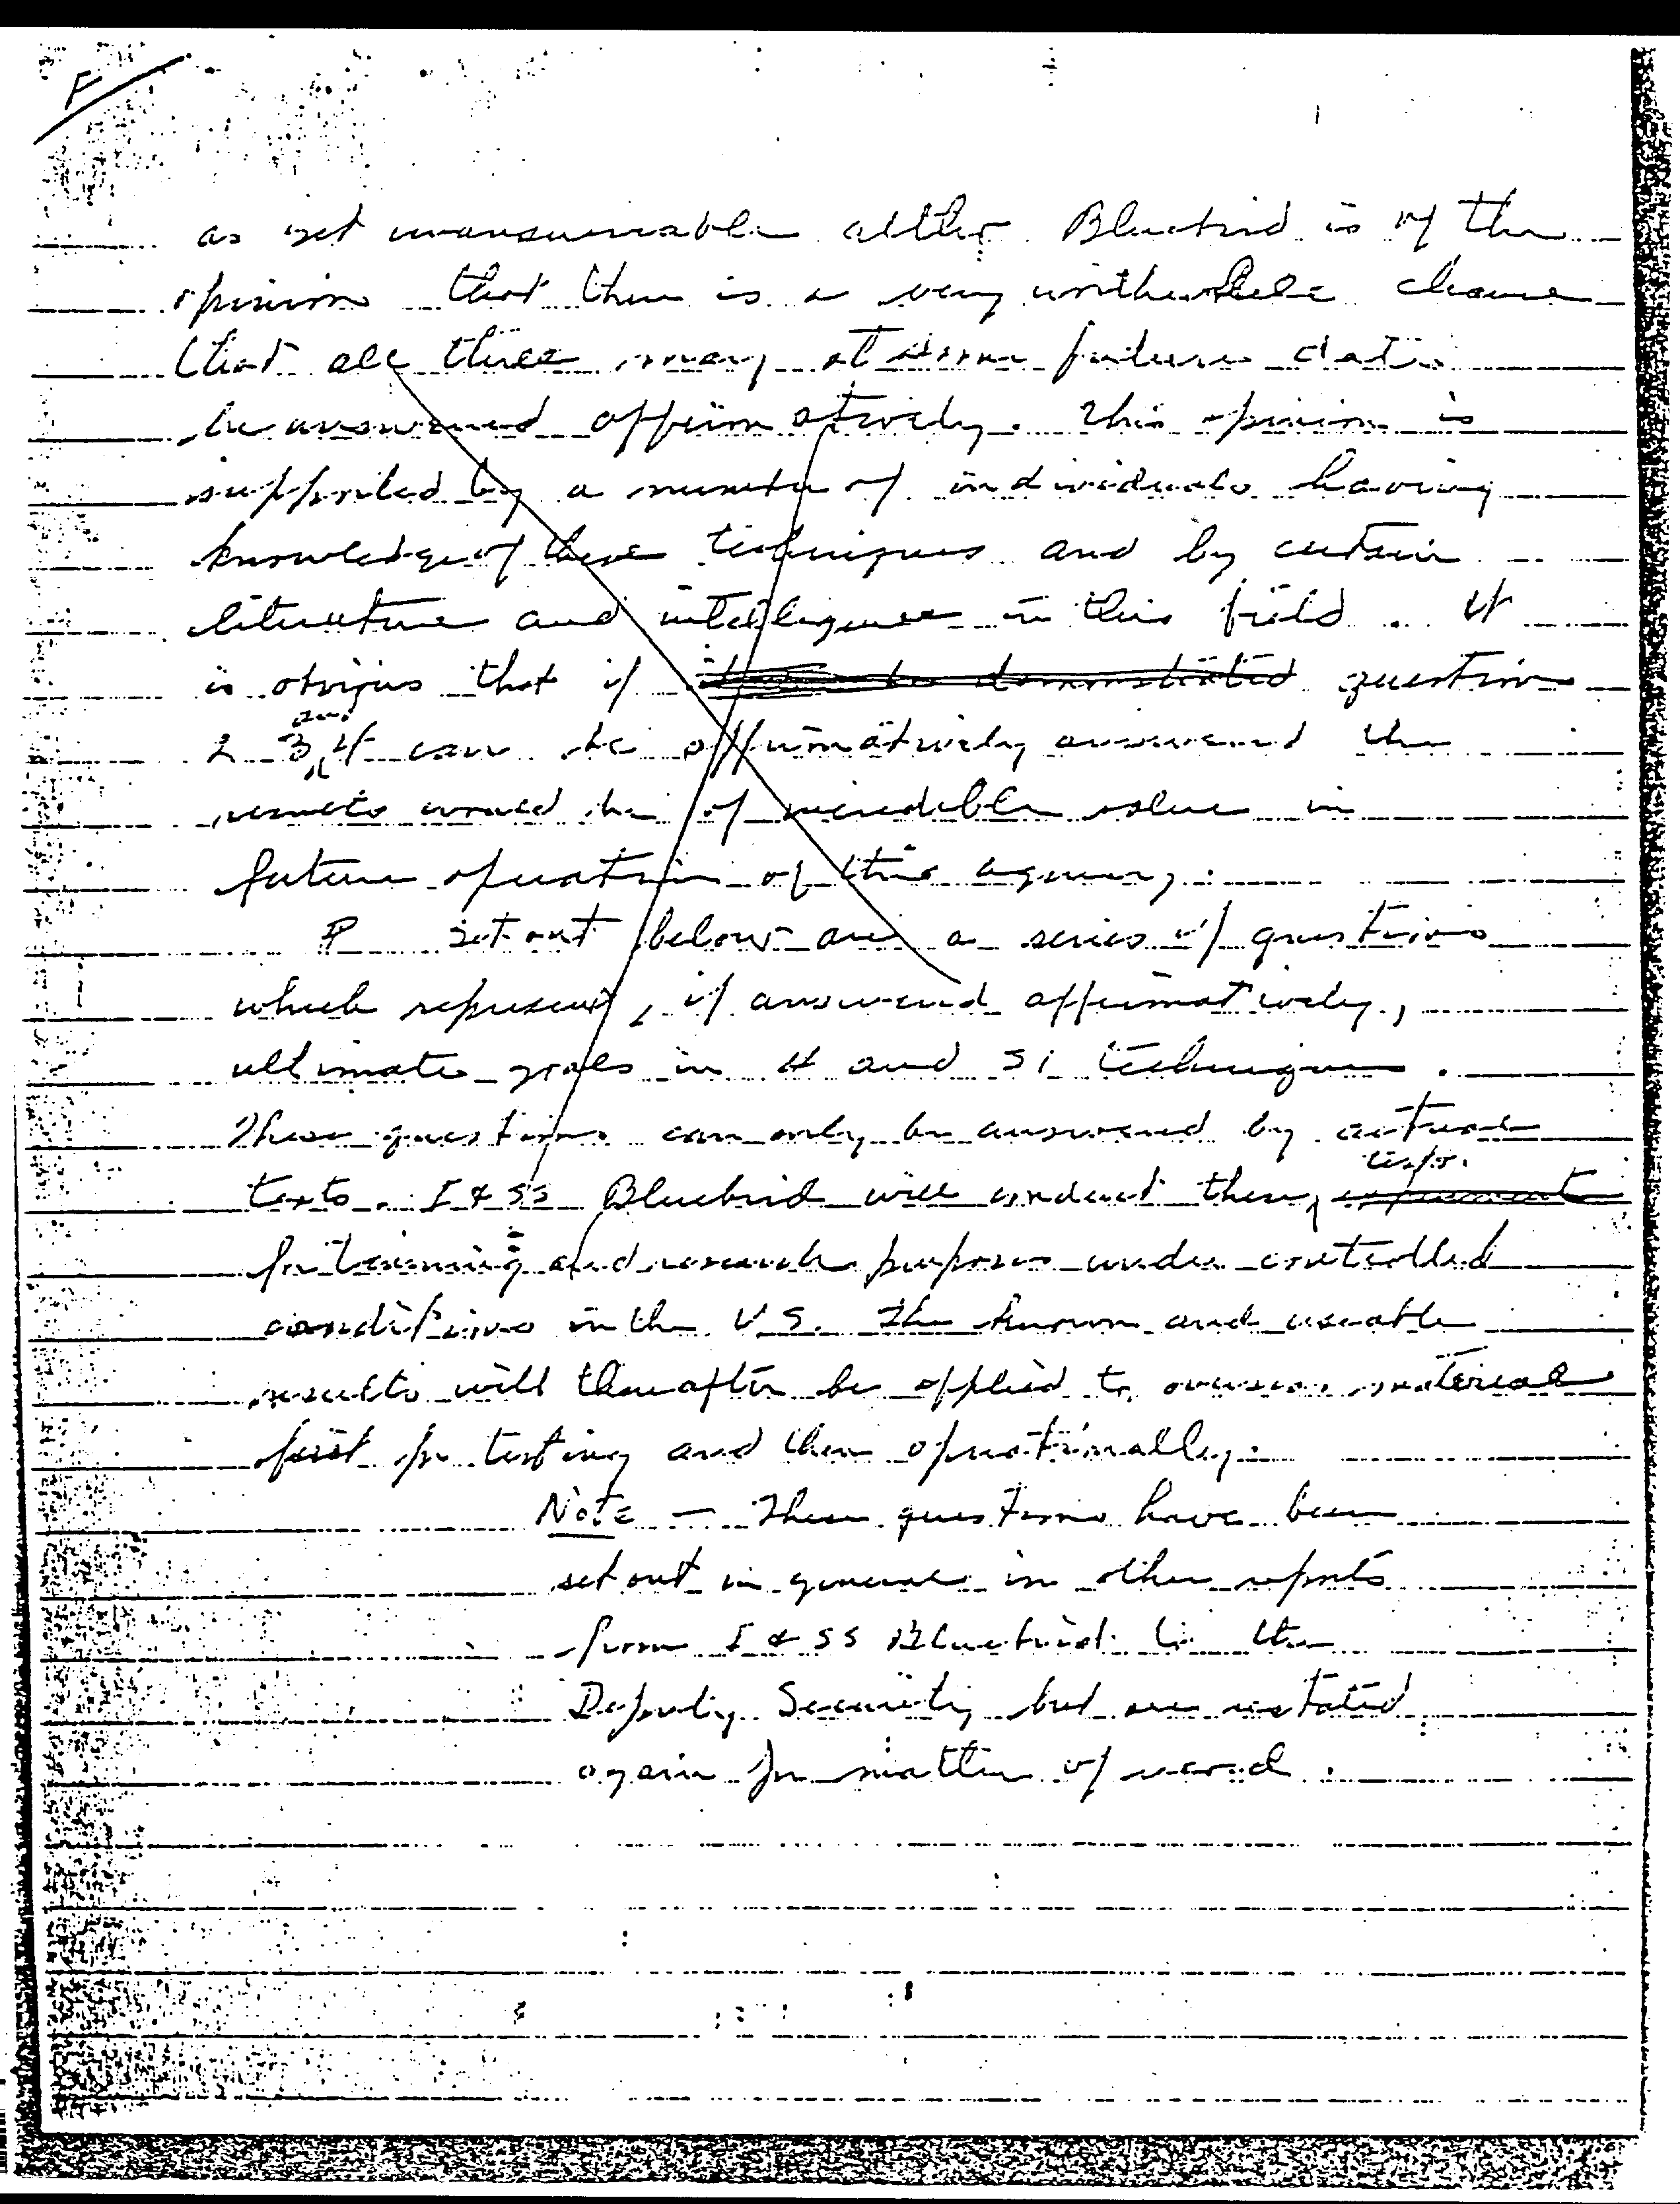 F
as yet unanswerable altho Bluebird is of the
opinion that there is a very worthwhile chance
that all three may at some future date
be answered affirmatively. This opinion is
supported by a number of individuals having
knowledge of these techniques and by certain
literature and intelligence in this field. It
is obvious that if demonstrated question
2 3 and 4 can be affirmatively answered the
results would be of incredible value in
future operation of this agency.
P Set out below are a series of questions
which represent, if answered affirmatively,
ultimate goals in H and SI techniques.
These questions can only be answered by actual
tests. I & SS Bluebird will conduct these tests. experiment
for training and research purposes under controlled
conditions in the U S. The known and useable
results will thereafter be applied to overseas material
first for testing and then operationally.
Note — These questions have been
set out in general in other reports
from I & SS Bluebird to the
Deputy Security but are restated
again for matter of record.